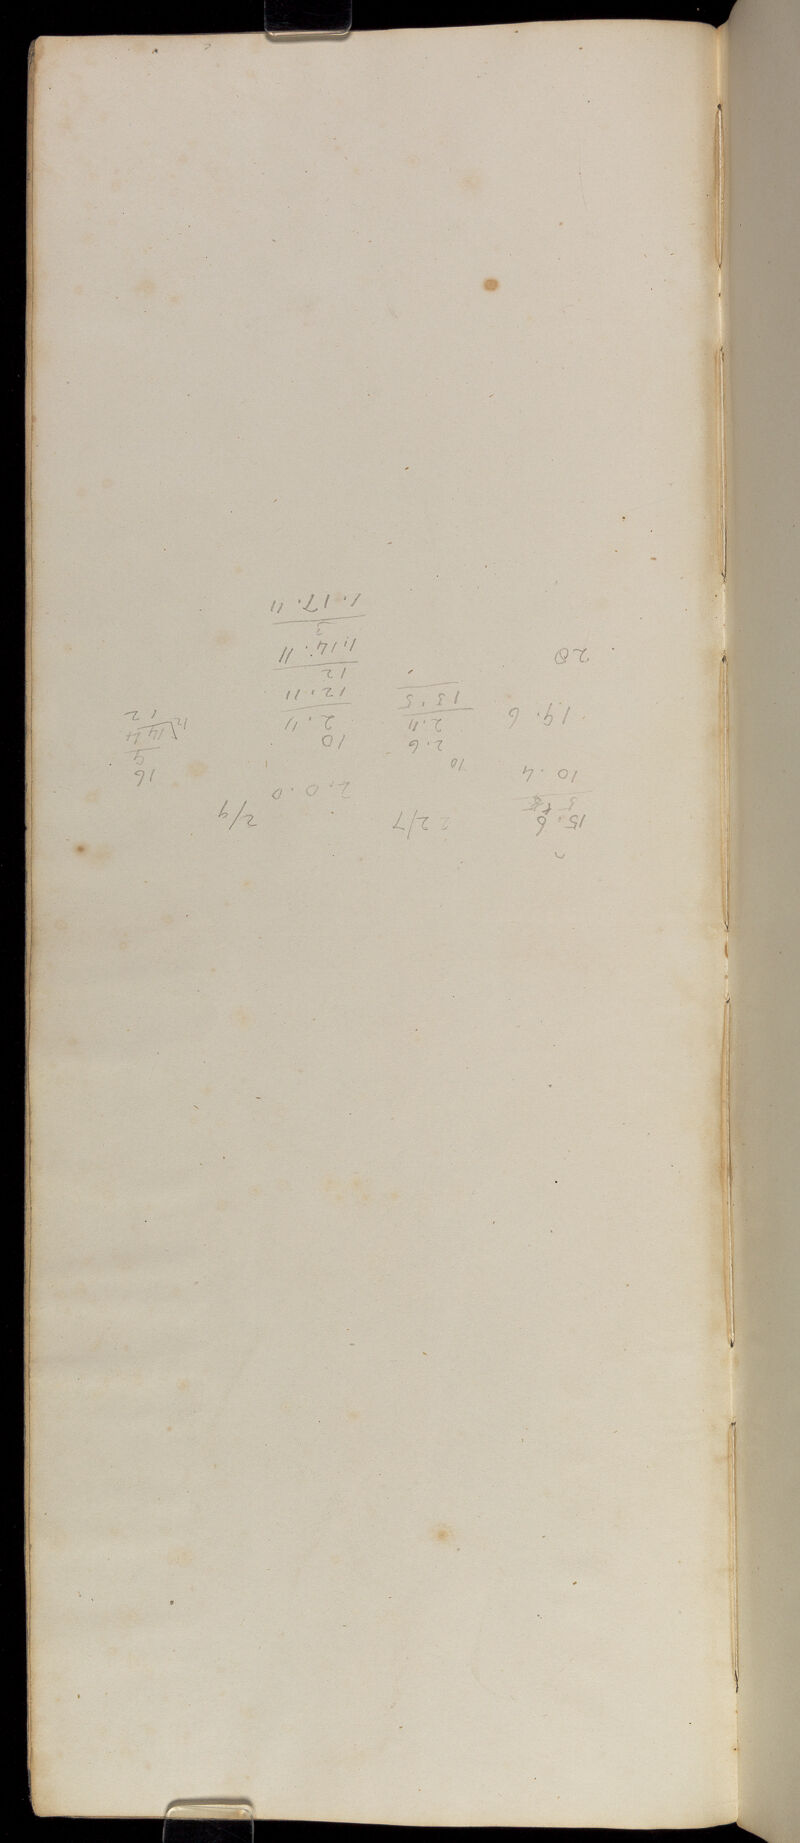 15. 6
10. 4
19. 6
20
22/7
10
2.6
2.11
13.5
2.0.0
10
2.11
12.11
12
1.14.11
3
1.17.11
16
9
12)144
12